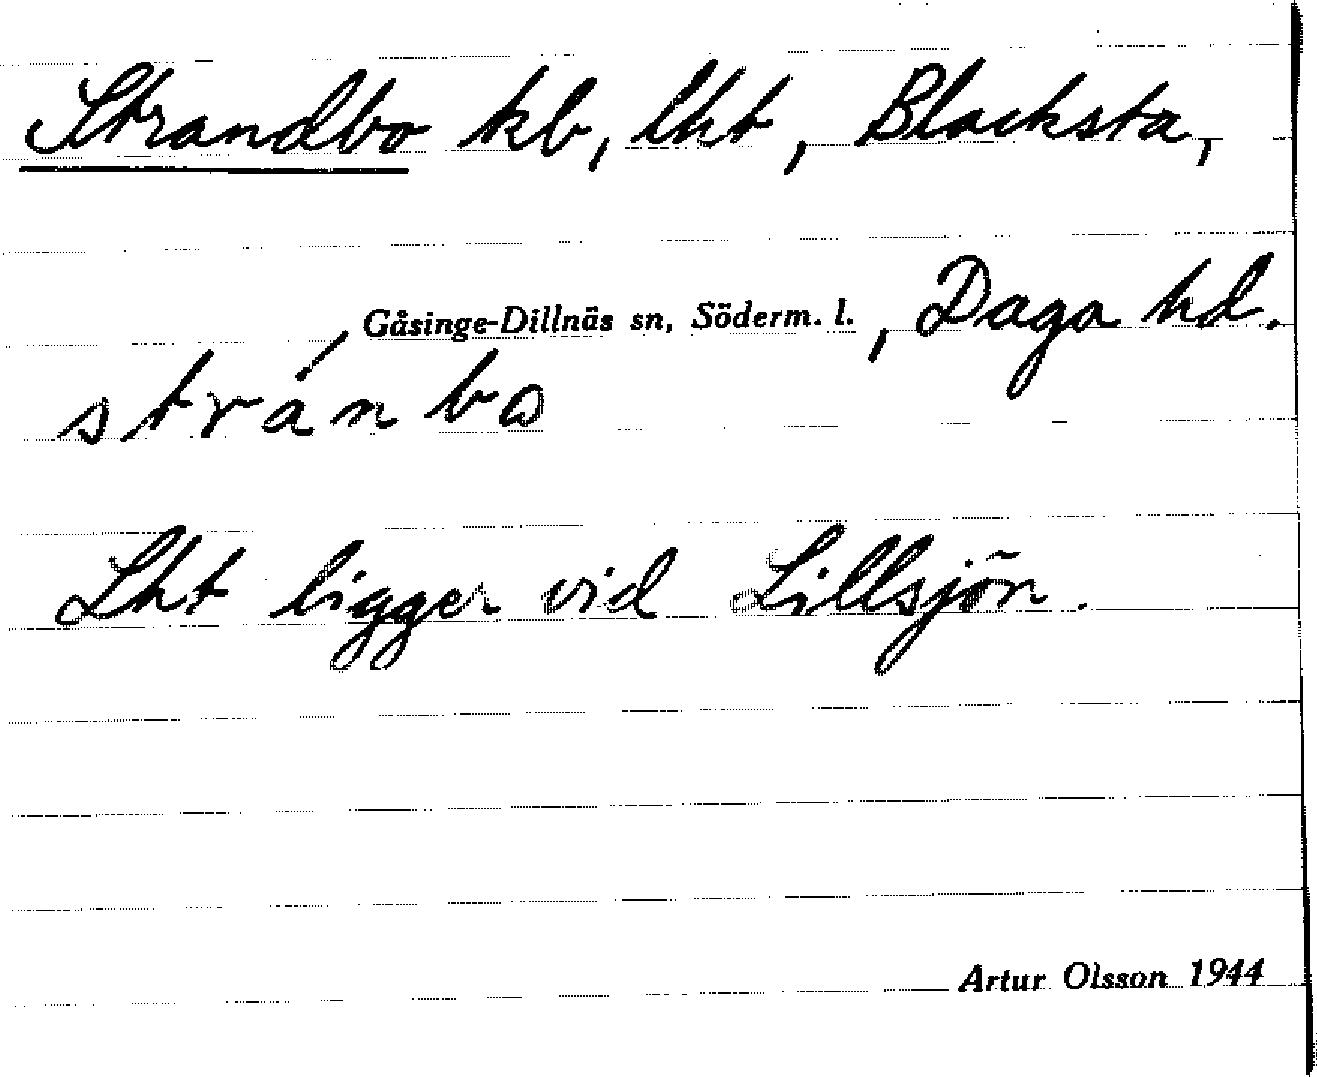 Strandbo kb, lht, Blacksta,
Gåsinge-Dillnäs sn, Söderm. l. , Daga hd.
stránbo
Lht ligger vid Lillsjön.
Artur Olsson 1944